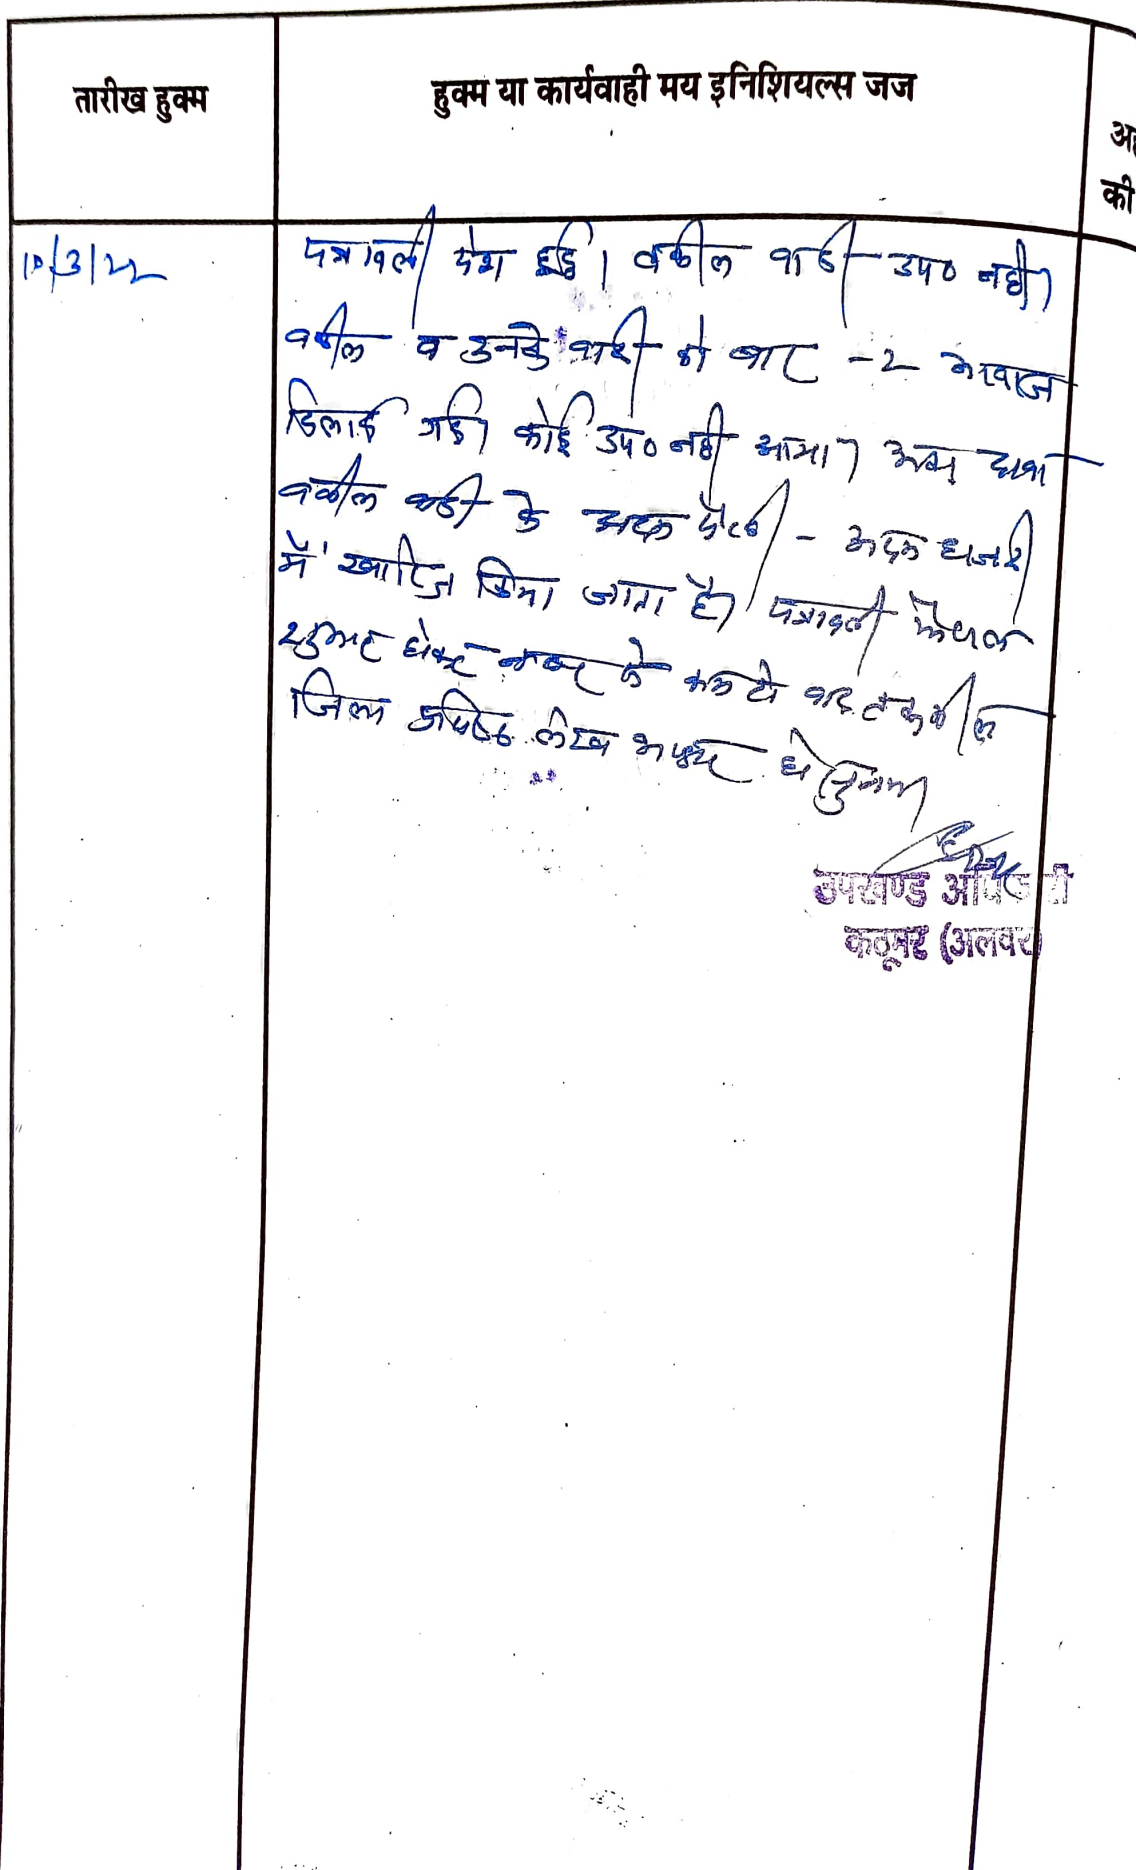 तारीख हुक्म
हुक्म या कार्यवाही मय इनिशियल्स जज
की
10/3/22
पत्रावली पेश हुई। वकील वादी उप० नहीं।
वकील व उनके वादी को बार -2 आवाज
दिलाई गई। कोई उप० नहीं आया। अतः दावा
वकील वादी के अदम पैरवी - अदम हाजरी
में खारिज किया जाता है। पत्रावली फैसल
शुमार होकर नम्बर से कम हो बाद तकमील
जिला अभिलेखागार
उपखण्ड अधिकारी
कठूमर (अलवर)